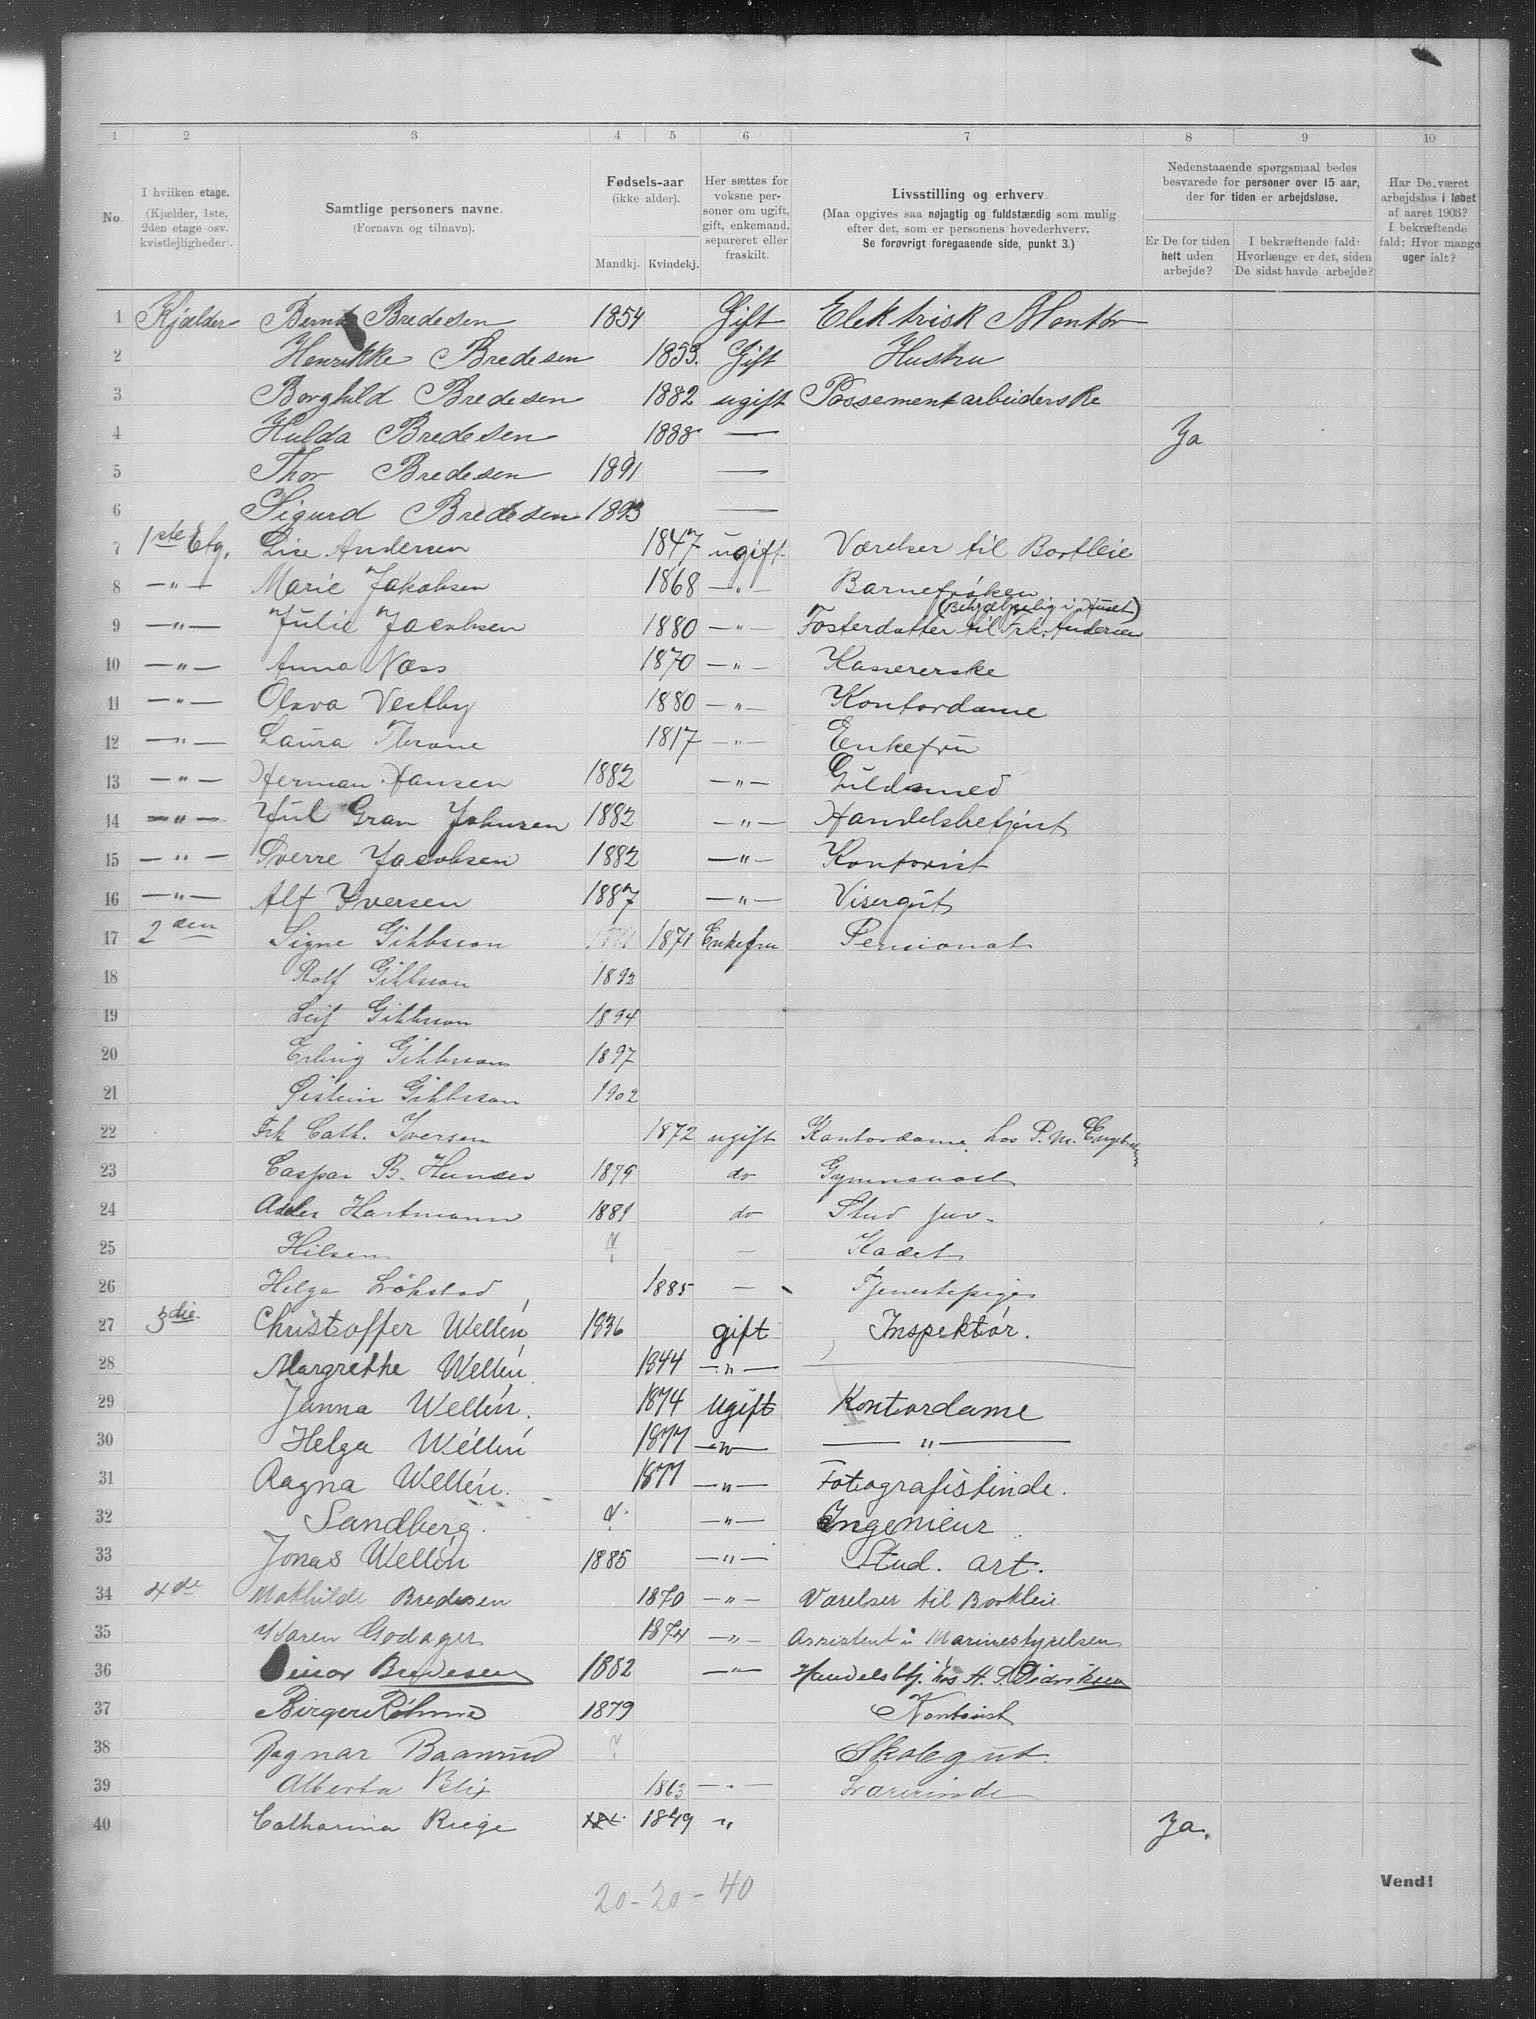 1 2 3 4 5 6 7 8 9 10
No.
I hvilken etage.
(Kjælder, 1ste,
2den etage osv.
kvistlejligheder).
Samtlige personers navne.
(Fornavn og tilnavn).
Fødsels-aar
(ikke alder).
Mandkj. Kvindekj.
Her sættes for
voksne per-
soner om ugift,
gift, enkemand,
separeret eller
fraskilt.
Livsstilling og erhverv.
(Maa opgives saa nøjagtig og fuldstærdig som mulig
efter det, som er personens hovederhverv.
Se forøvrigt foregaaende side, punkt 3.)
Nedenstaaende spørgsmaal bedes
besvarede for personer over 15 aar,
der for tiden er arbejdsløse.
Er De for tiden
helt uden
arbejde?
I bekræftende fald:
Hvorlænge er det, siden
De sidst havde arbejde?
Har De været
arbejdsløs i løbet
af aaret 1903?
I bekræftende
fald: Hvor mange
uger ialt?
1 Kjælder Bernt Bredesen 1854 Gift Elektrisk Montør
2 Henrikke Bredesen 1853. Gift Hustru
3 Borghild Bredesen 1882 ugift Possementarbeiderske
4 Hulda Bredesen 1888 — Ja
5 Thor Bredesen 1891 —
6 Sigurd Bredesen 1893 —
7 1ste Etg. Lise Andersen 1847 ugift Værelser til Bortleie
8 —"— Marie Jakobsen 1868 —"— Barnefrøken
(Behjælpelig i Huset)
9 —"— Julie Jacobsen 1880 —"— Fosterdatter til Frk. Andersen
10 —"— Anna Næss 1870 —"— Kassererske
11 —"— Olava Vestby 1880 —"— Kontordame
12 —"— Laura Throne 1817 —"— Enkefru
13 —"— Herman Hansen 1882 —"— Guldsmed
14 —"— Hjul Gran Johnsen 1882 —"— Handelsbetjent
15 —"— Sverre Jacobsen 1882 —"— Kontorist
16 —"— Alf Iversen 1887 —"— Visergut
17 2den Signe Gibbsson 1871 Enkefru Pensionat
18 Rolf Gibbsson 1892
19 Leif Gibbsson 1894
20 Erling Gibbsson 1897
21 Øistein Gibbsson 1902
22 Frk Cath. Iversen 1872 ugift Kontordame hos P. M.
23 Caspar B. 1879 do Gymnasast
24 Hartmann 1881 do Stud jur.
25 Hilsen ? — Kadet
26 Helga Løkstad 1885 — Tjenestepige
27 3die. Christoffer Wellén 1836 gift Inspektør.
28 Margrethe Wellén. 1844 —"— —
29 Janna Wellén. 1874 Ugift Kontordame
30 Helga Wellén 1877 —"— —"—
31 Ragna Wellén. 1877 —"— Fotografistinde.
32 Sandberg. ? —"— Ingenieur.
33 Jonas Wellén 1885 —"— Stud. art.
34 4de Mathilde Bredesen 1870 —"— Værelser til Bortleie
35 Karen Godager 1874 —"— Assistent i Marinestyrelsen
36 Einar Bredesen 1882 —"— Handelsbtj. hos H. P. Didriksen
37 Birger Røhme 1879 Kontorist
38 Ragnar Baanrud ? Skolegut.
39 Alberta Blix 1863 —"— Lærerinde
40 Catharina Riege 1849 " Ja.
20-20-40
Vend!